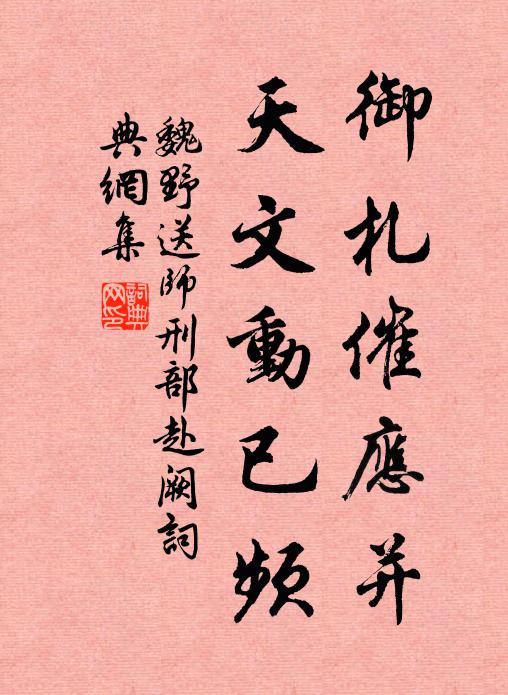 御札催應并
天文動已頻
魏野送師刑部赴阙詞
典網集
詞典
网印